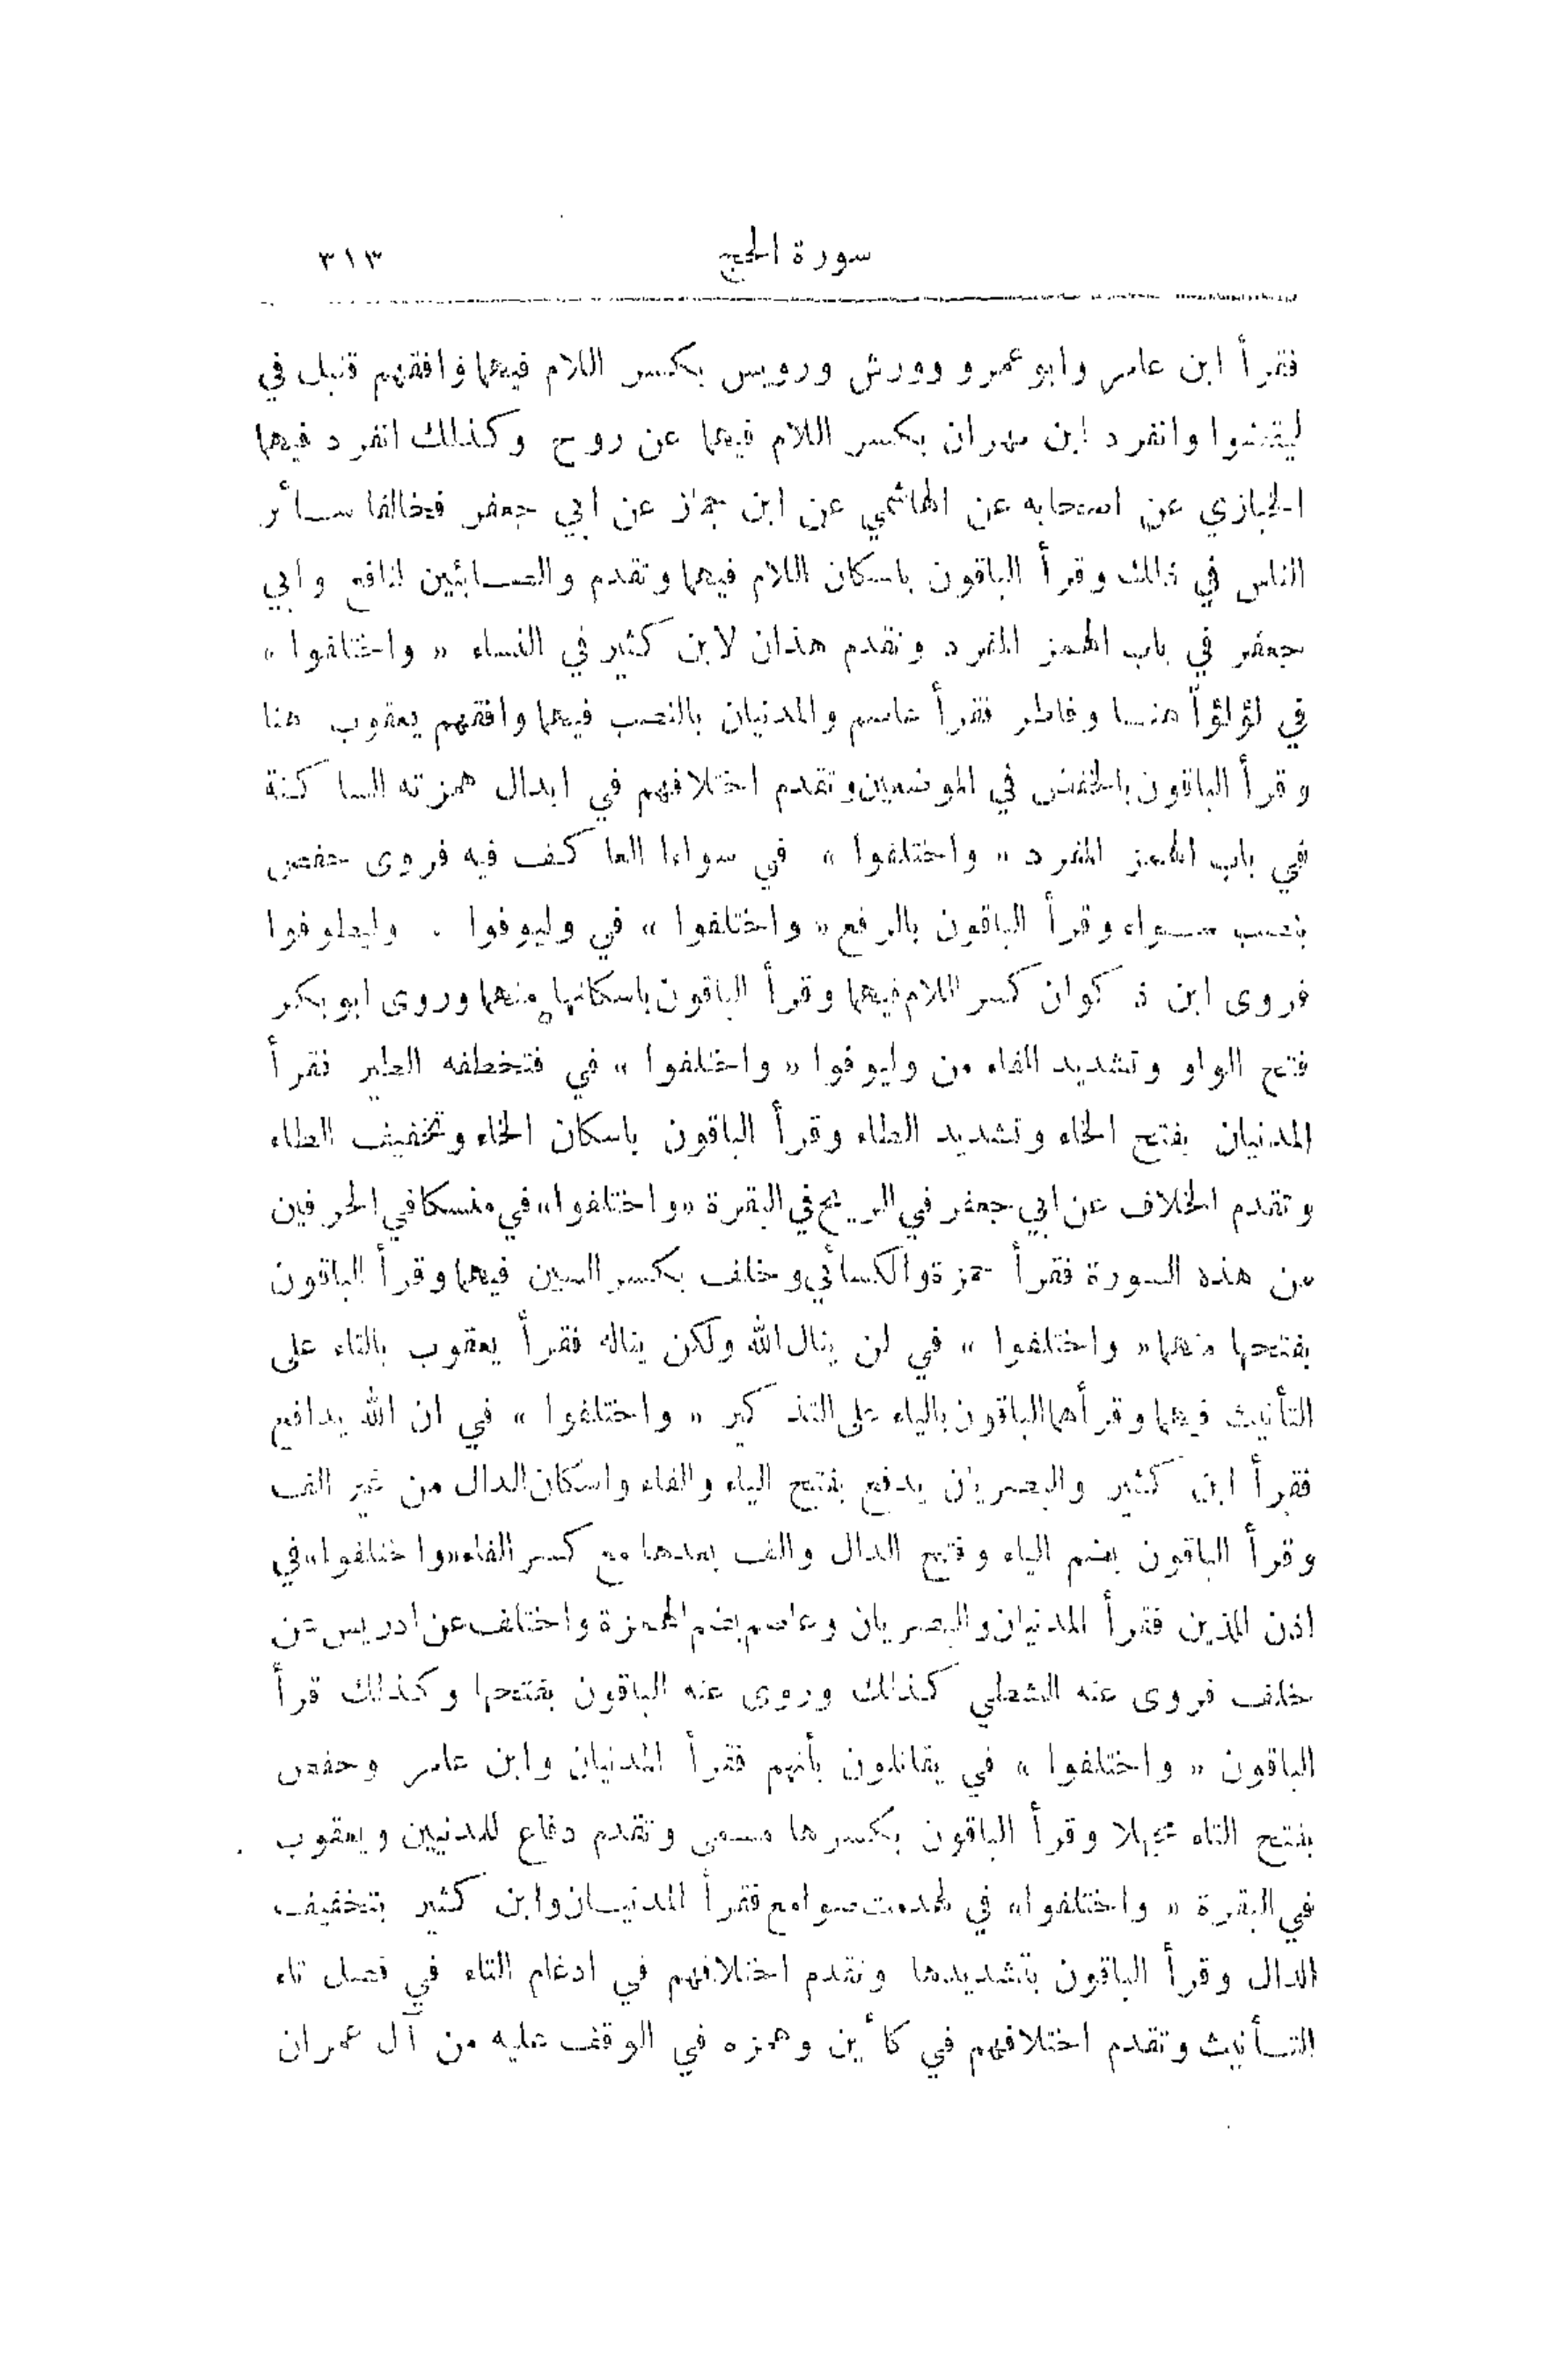 سورة الحج ٣١٣
فقرأ ابن عامر وابو عمرو وورش ورويس بكسر اللام فيهما وافقهم قنبل في
ليقضوا وانفرد ابن مهران بكسر اللام فيهما عن روح وكذلك انفرد فيهما
الخبازي عن اصحابه عن الهاشمي عن ابن جماز عن ابي جعفر فخالفا سائر
الناس في ذلك وقرأ الباقون باسكان اللام فيهما وتقدم والصابئين لنافع وابي
جعفر في باب الهمز المفرد وتقدم هذان لابن كثير في النساء « واختلفوا »
في لؤلؤاً هنا وفاطر فقرأ عاصم والمدنيان بالنصب فيهما وافقهم يعقوب هنا
وقرأ الباقون بالخفض في الموضعين وتقدم اختلافهم في ابدال همزته الساكنة
في باب الهمز المفرد « واختلفوا » في سواءا العاكف فيه فروى حفص
بنصب سواء وقرأ الباقون بالرفع « واختلفوا » في وليوفوا . وليطوفوا
فروى ابن ذكوان كسر اللام فيهما وقرأ الباقون باسكانها منهما وروى ابو بكر
فتح الواو وتشديد الفاء من وليوفوا « واختلفوا » في فتخطفه الطير فقرأ
المدنيان بفتح الخاء وتشديد الطاء وقرأ الباقون باسكان الخاء وتخفيف الطاء
وتقدم الخلاف عن ابي جعفر في الريح في البقرة «واختلفوا» في منسكا في الحرفين
من هذه السورة فقرأ حمزة والكسائي وخلف بكسر السين فيهما وقرأ الباقون
بفتحها منهما « واختلفوا » في لن ينال الله ولكن يناله فقرأ يعقوب بالتاء على
التأنيث فيهما وقرأهما الباقون بالياء على التذكير « واختلفوا » في ان الله يدافع
فقرأ ابن كثير والبصريان يدفع بفتح الياء والفاء واسكان الدال من غير الف
وقرأ الباقون بضم الياء وفتح الدال والف بعدها مع كسر الفاء «واختلفوا» في
اذن للذين فقرأ المدنيان والبصريان وعاصم بضم الهمزة واختلف عن ادريس عن
خلف فروى عنه الشطي كذلك وروى عنه الباقون بفتحها وكذلك قرأ
الباقون « واختلفوا » في يقاتلون بأنهم فقرأ المدنيان وابن عامر وحفص
بفتح التاء مجهلا وقرأ الباقون بكسرها مسمى وتقدم دفاع للمدنيين ويعقوب
في البقرة « واختلفوا» في لهدمت صوامع فقرأ المدنيان وابن كثير بتخفيف
الدال وقرأ الباقون بتشديدها وتقدم اختلافهم في ادغام التاء في فصل تاء
التأنيث وتقدم اختلافهم في كأين وهمزه في الوقف عليه من آل عمران